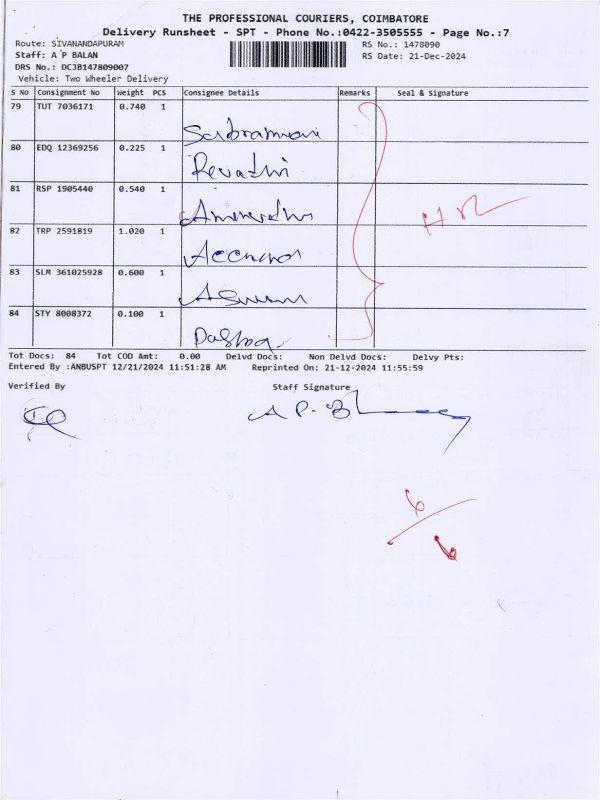 THE PROFESSIONAL COURIERS, COIMBATORE
Delivery Runsheet - SPT - Phone No.:0422-3505555 - Page No.:7
Route: SIVANANDAPURAM
Staff: A P BALAN
DRS No.: DCJB147809007
Vehicle: Two Wheeler Delivery
RS No.: 1478090
RS Date: 21-Dec-2024
S No Consignment No Weight PCS Consignee Details Remarks Seal & Signature
79 TUT 7036171 0.740 1
80 EDQ 12369256 0.225 1
Revathi
81 RSP 1905440 0.540 1
82 TRP 2591819 1.020 1
83 SLM 361025928 0.600 1
84 STY 8008372 0.100 1
Tot Docs: 84 Tot COD Amt: 0.00 Delvd Docs: Non Delvd Docs: Delvy Pts:
Entered By :ANBUSPT 12/21/2024 11:51:28 AM Reprinted On: 21-12-2024 11:55:59
Verified By Staff Signature
6
6